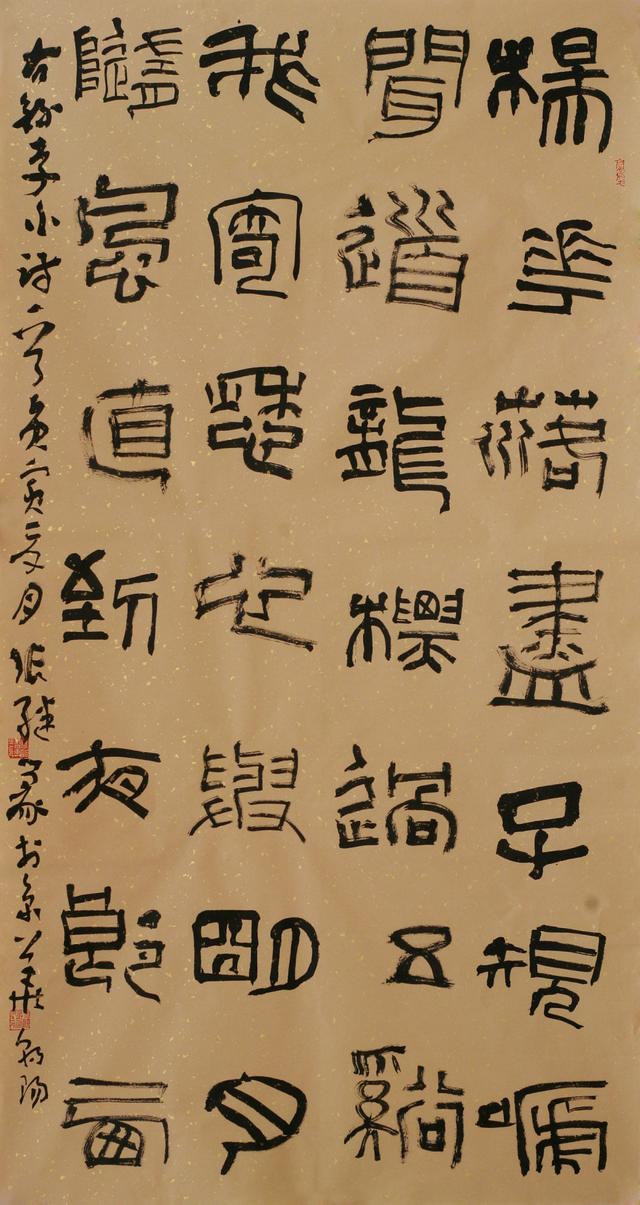 楊華落盡子規嗁
聞道龍標過五谿
我寄愁心與明月
隨風直到夜郎西
右錄李小詩一首庚寅夏月張繼篆於京